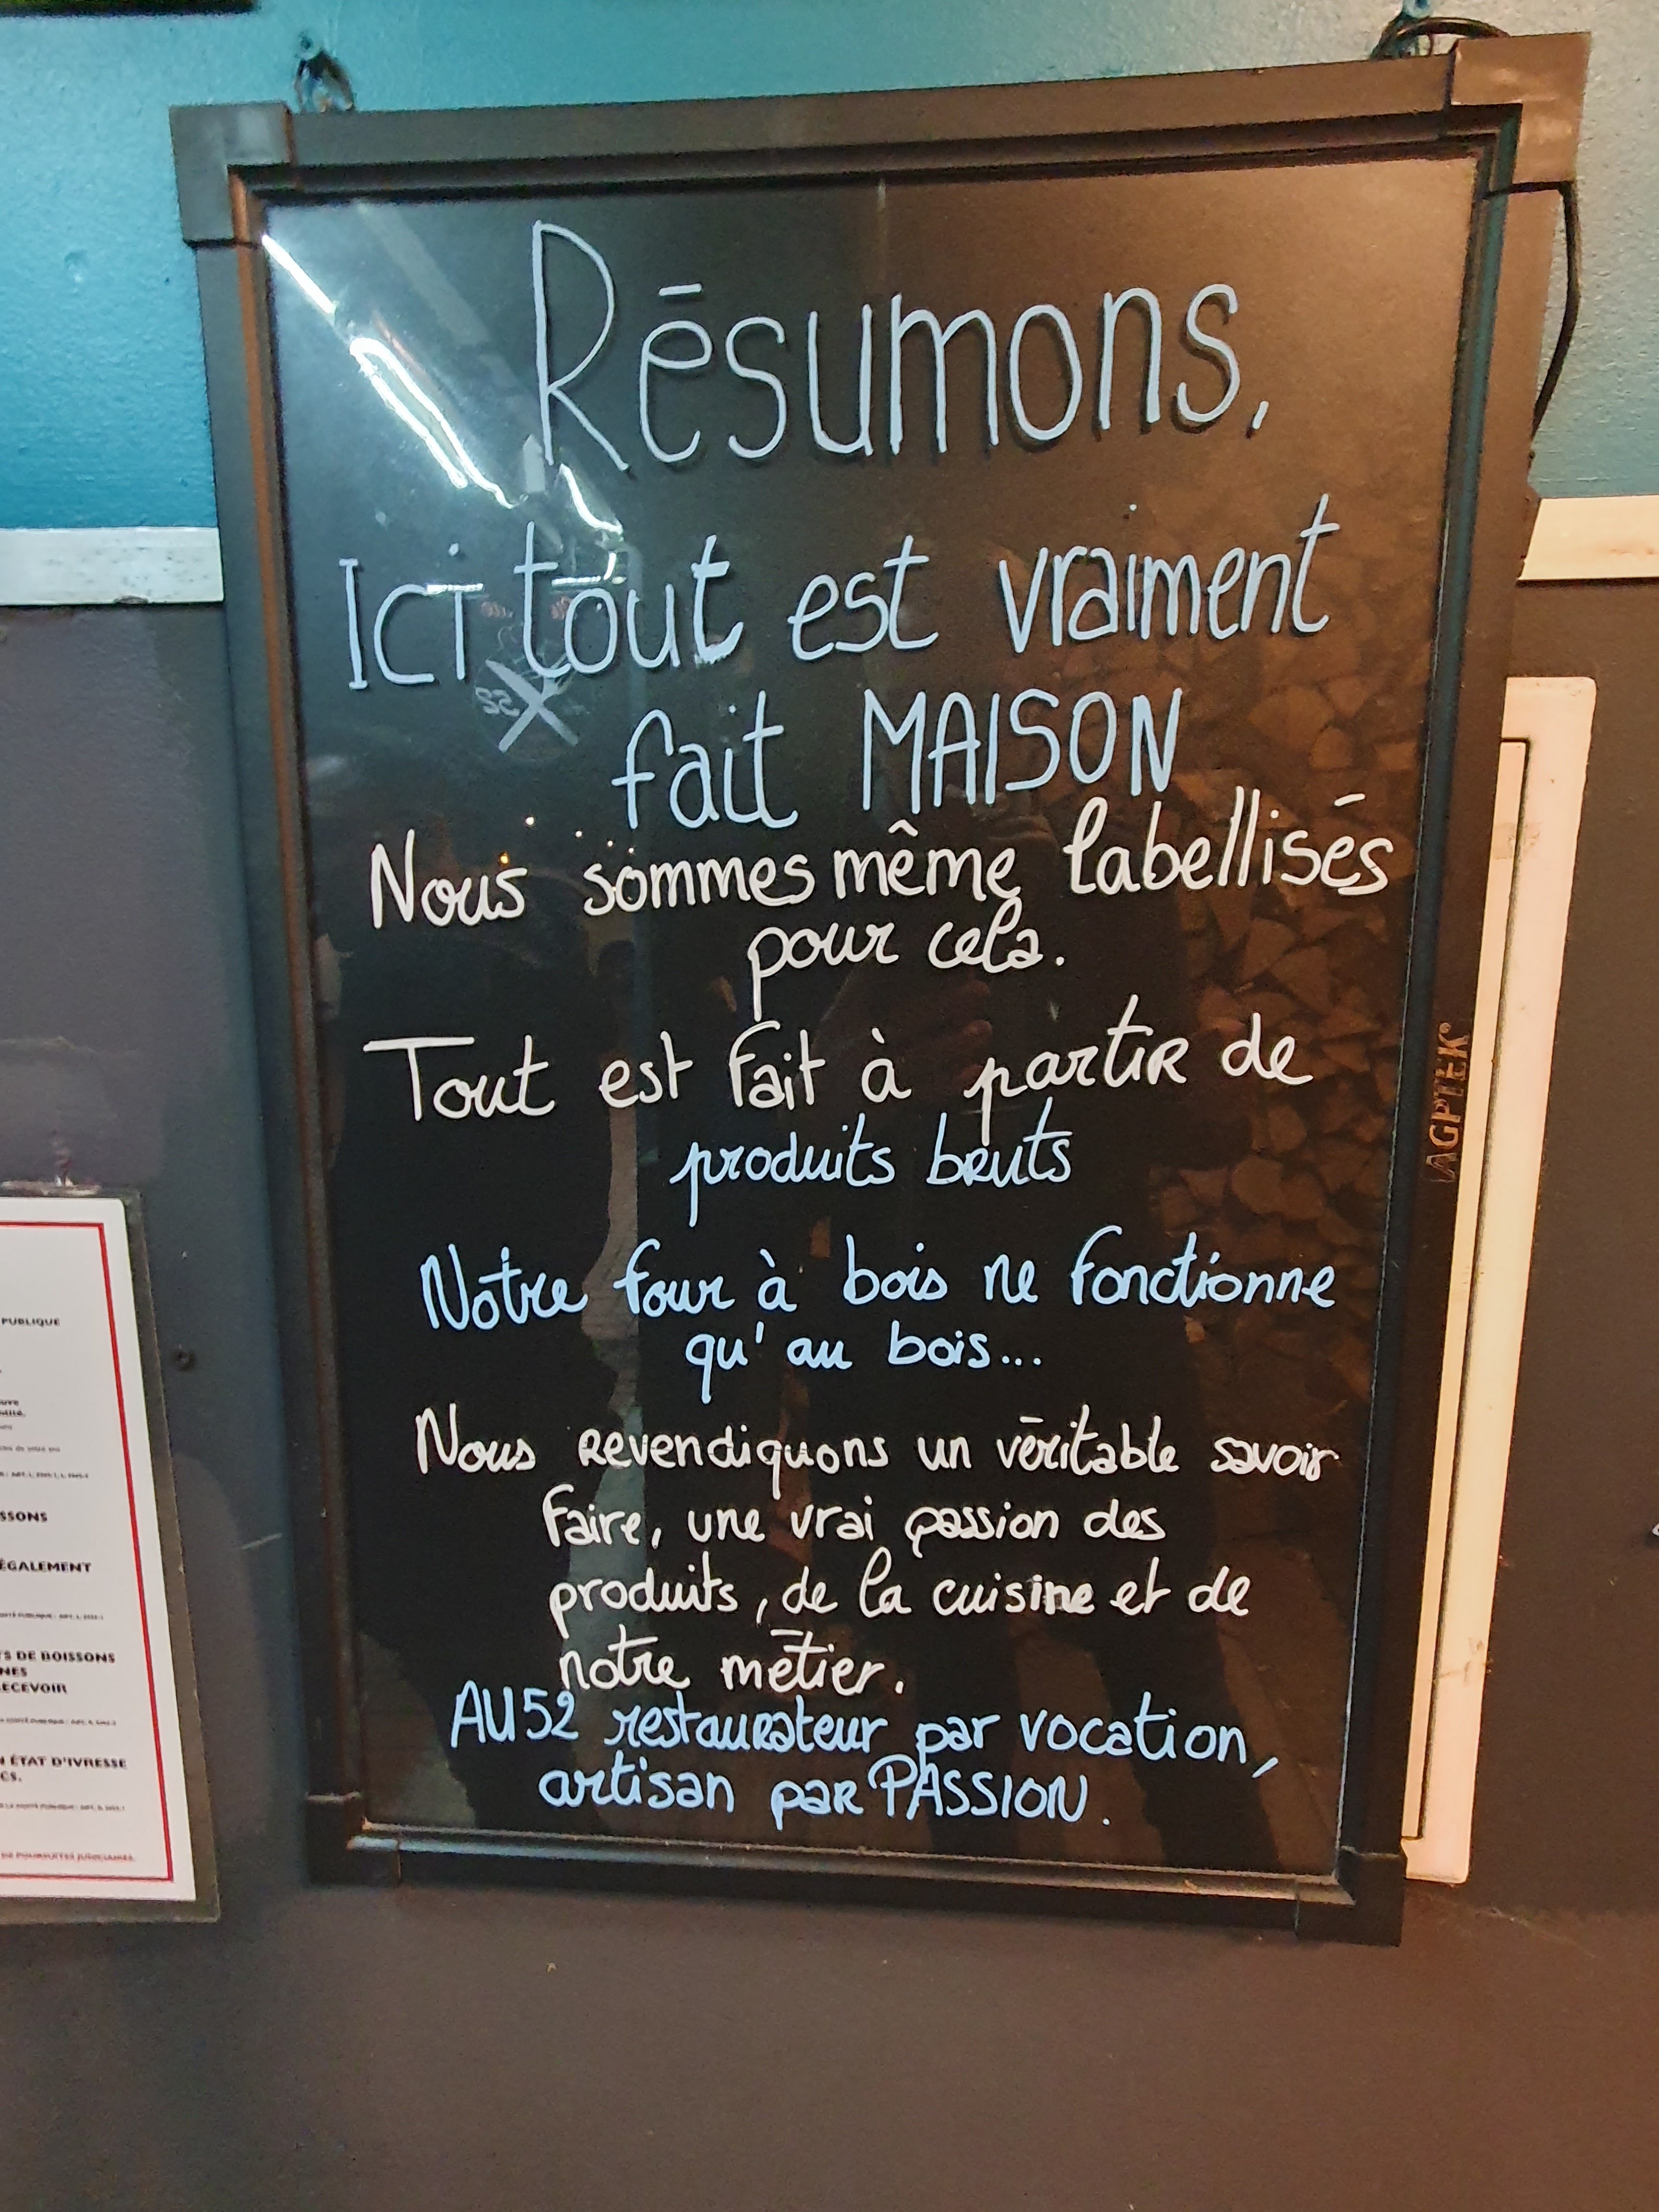 Résumons,
Ici tout est vraiment
fait MAISON
Nous sommes même labellisés
pour cela.
Tout est fait à partir de
produits bruts
Notre four à bois ne fonctionne
qu'au bois...
Nous revendiquons un véritable savoir
faire, une vrai passion des
produits, de la cuisine et de
notre métier.
AU 52 restaurateur par vocation,
artisan par PASSION.
AGPTEK
PUBLIQUE
SSONS
ÉGALEMENT
TS DE BOISSONS
NES
ECEVOIR
N ÉTAT D'IVRESSE
CS.
DE POURSUITES JUDICIAIRES.